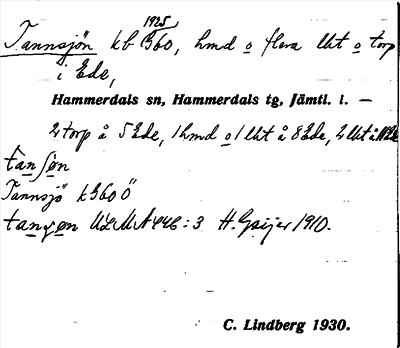 1925
Tannsjön kb 360, hmd o flera lht o torp
i Ede,
Hammerdals sn, Hammerdals tg, Jämtl. l. —
2 torp å 5 Ede, 1 hmd o 1 lht å 8 Ede, 2 lht å
tanʃøn
Tannsjö k 360 Ö
ULMA 446:3 H. Geijer 1910.
C. Lindberg 1930.